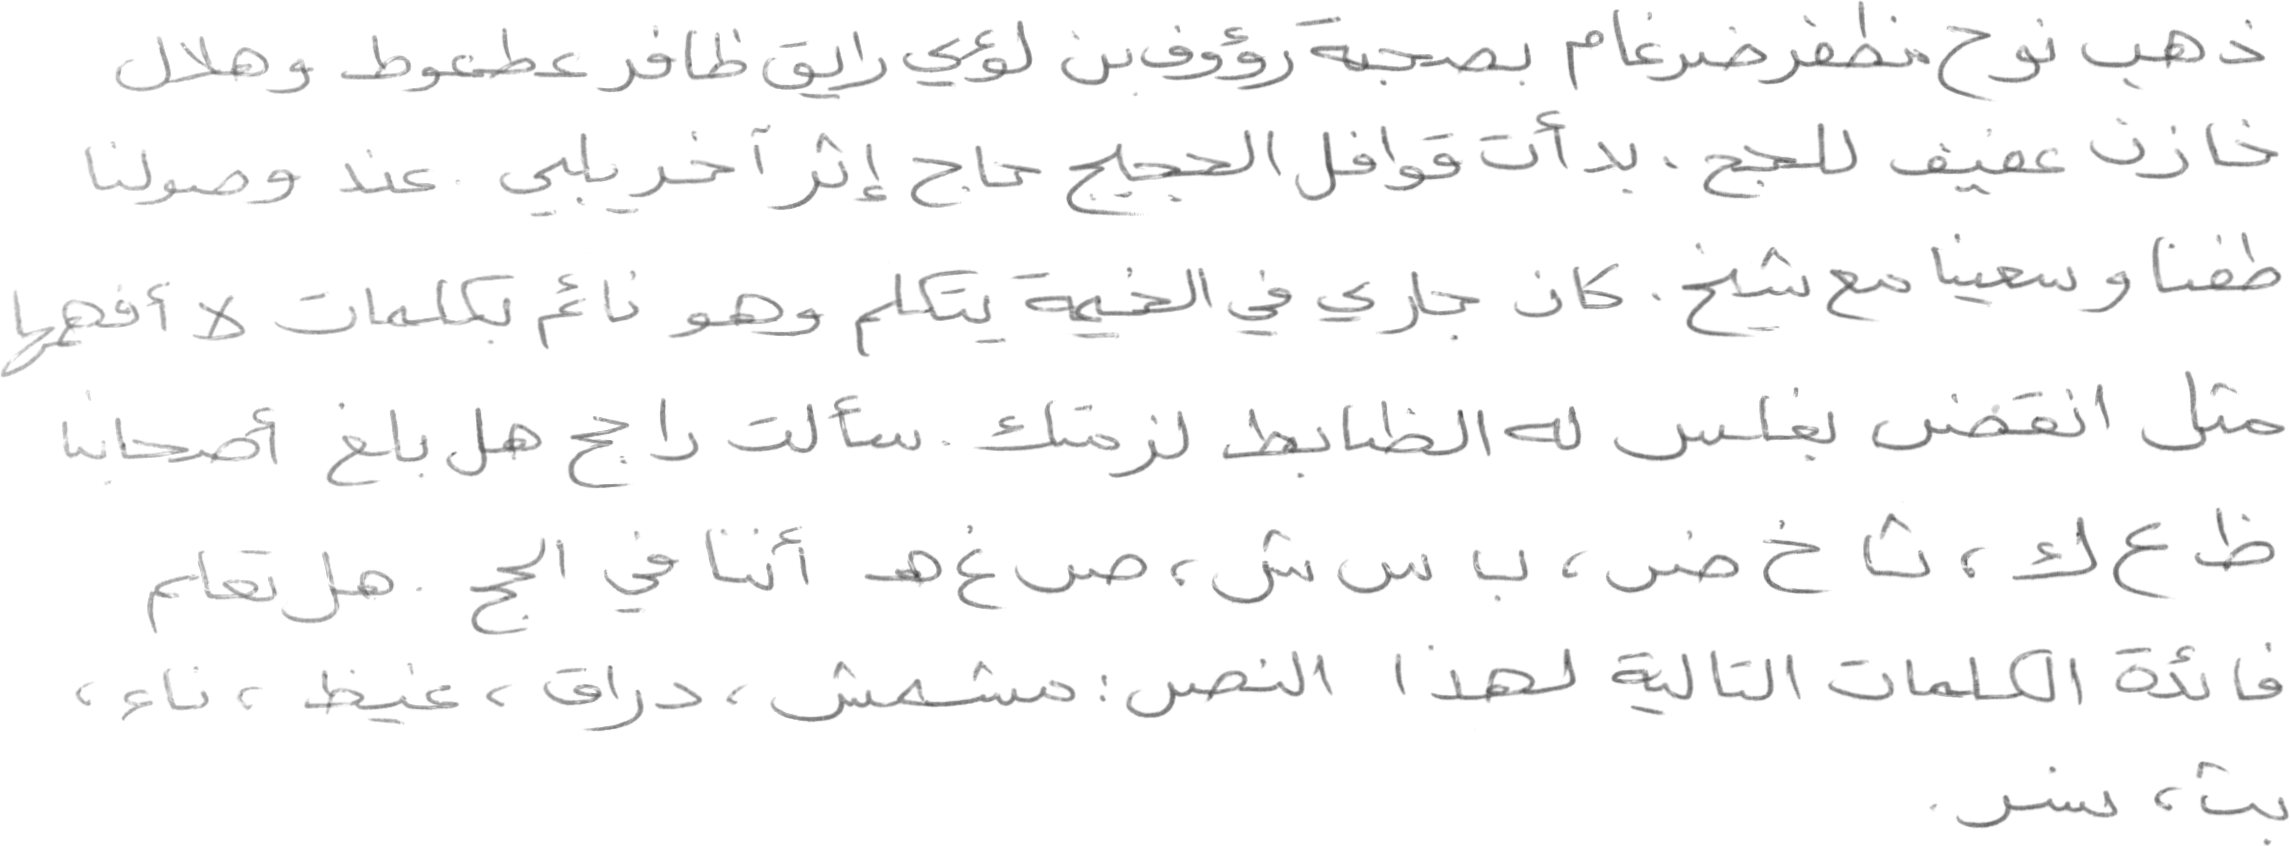 ذهب نوح مظفر ضرغام بصحبة رؤوف بن لؤي رايق ظافر عطعوط وهلال
خازن عفيف للحج. بدأت قوافل الحجيج حاج إثر آخر يلبي. عند وصولنا
طفنا وسعينا مع شيخ. كان جاري في الخيمة يتكلم وهو نائم بكلمات لا أفهمها
مثل انقض بغلس له الظابط لزمتك. سألت راجح هل بلغ أصحابنا
ظ ع ك، ث خ ض، ب س ش، ص غ هـ أننا في الحج. هل تعلم
فائدة الكلمات التالية لهذا النص: مشمش، دراق، غيظ، ناء،
بث، نسر.